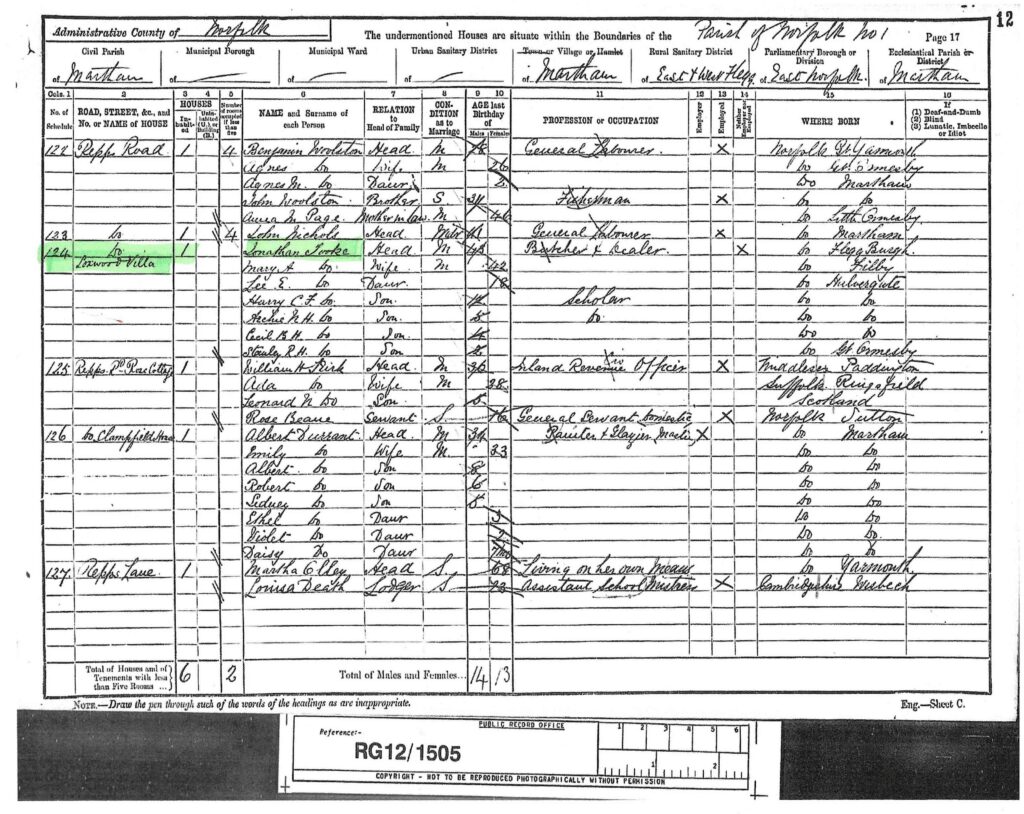 12
Administrative County of Norfolk The undermentioned Houses are situate within the Boundaries of the Parish of Norfolk No 1 Page 17
Civil Parish Municipal Borough Municipal Ward Urban Sanitary District Town or Village or Hamlet Rural Sanitary District Parliamentary Borough or Division Ecclesiastical Parish or District
of Martham of — of — of — of Martham of East & West Flegg of East Norfolk of Martham
Cols. 1 2 3 4 5 6 7 8 9 10 11 12 13 14 15 16
No. of Schedule ROAD, STREET, &c., and No. or NAME of HOUSE HOUSES Inhabited Uninhabited (U.) or Building (B.) Number of rooms occupied if less than five NAME and Surname of each Person RELATION to Head of Family CONDITION as to Marriage AGE last Birthday of Males Females PROFESSION or OCCUPATION Employer Employed Neither Employer nor Employed WHERE BORN If (1) Deaf-and-Dumb (2) Blind (3) Lunatic, Imbecile or Idiot
122 Repps Road 1 4 Benjamin Woolston Head M General Labourer X Norfolk Gt Yarmouth
Agnes Do Wife M 26 Do Gt Ormesby
Agnes M. Do Daur 2 Do Martham
John Woolston Brother S Fisherman X Do Do
Page Mother in law M 46 Do Ormesby
123 Do 1 4 John Nichols Head General Labourer X Do Martham
124 Do 1 Jonathan Tooke Head M Butcher & Dealer X Do Flegg Burgh
Loxwood Villa Mary A Do Wife M 42 Do Filby
Lee E. Do Daur 18 Do Halvergate
Harry C. F. Do Son Scholar Do Do
Archie N. H. Do Son 5 Do Do Do
Cecil B. H. Do Son 4 Do Do
Stanley R. H. Do Son 2 Do Gt Ormesby
125 Repps Rd Cottage 1 William H Kirk Head M 36 Inland Revenue Officer X Middlesex Paddington
Ada Do Wife M 38 Suffolk Ringsfield
Leonard N Do Son 5 Scotland
Rose Beane Servant S 16 General Servant Domestic X Norfolk Sutton
126 Do House 1 Albert Durrant Head M 34 & Glazier Master X Do Martham
Emily Do Wife M. 33 Do Do
Albert Do Son 8 Do Do
Robert Do Son 6 Do Do
Sidney Do Son 5 Do Do
Ethel Do Daur 3 Do Do
Violet Do Daur 2 Do Do
Daisy Do Daur Do Do
127 Repps Lane 1 Martha Olley Head S 68 Living on her own Means Do Yarmouth
Louisa Death Lodger S Assistant School Mistress X Cambridgeshire Wisbech
Total of Houses and of Tenements with less than Five Rooms ... 6 2 Total of Males and Females... 14 13
NOTE.—Draw the pen through such of the words of the headings as are inappropriate. Eng.—Sheet C.
PUBLIC RECORD OFFICE 1 2 3 4 5 6
Reference:-
RG12/1505 1 2
COPYRIGHT - NOT TO BE REPRODUCED PHOTOGRAPHICALLY WITHOUT PERMISSION